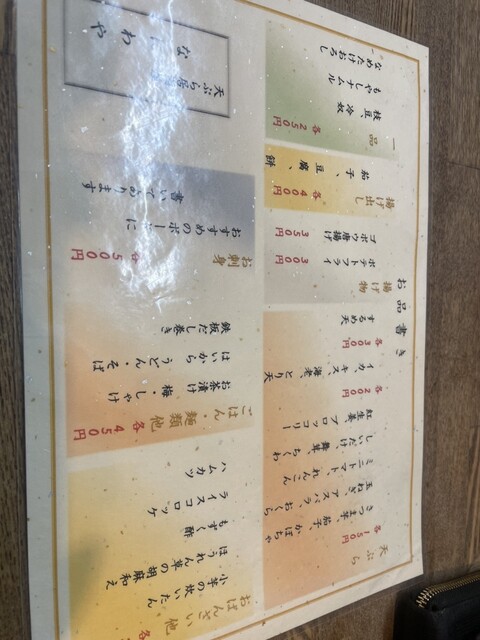 お品書き
一品
各250円
枝豆、冷奴
もやしナムル
なめたけおろし
揚げ出し
各400円
茄子、豆腐、餅
揚げ物
ポテトフライ 300円
ゴボウ唐揚げ 350円
するめ天 各300円
イカ、キス、海老、とり天 各200円
天ぷら
各150円
さつま芋、茄子、かぼちゃ
玉ねぎ、アスパラ、おくら
ミニトマト、れんこん
しいたけ、舞茸、ちくわ
紅生姜、ブロッコリー
天ぷら居
わや
お刺身
各500円
おすすめのボードに
書いてあります
ごはん・麺類 他
各450円
お茶漬け 梅・しゃけ
はいからうどん・そば
鉄板だし巻き
おばんざい他
各
小芋の炊いたん
ほうれん草の胡麻和え
もずく酢
ライスコロッケ
ハムカツ